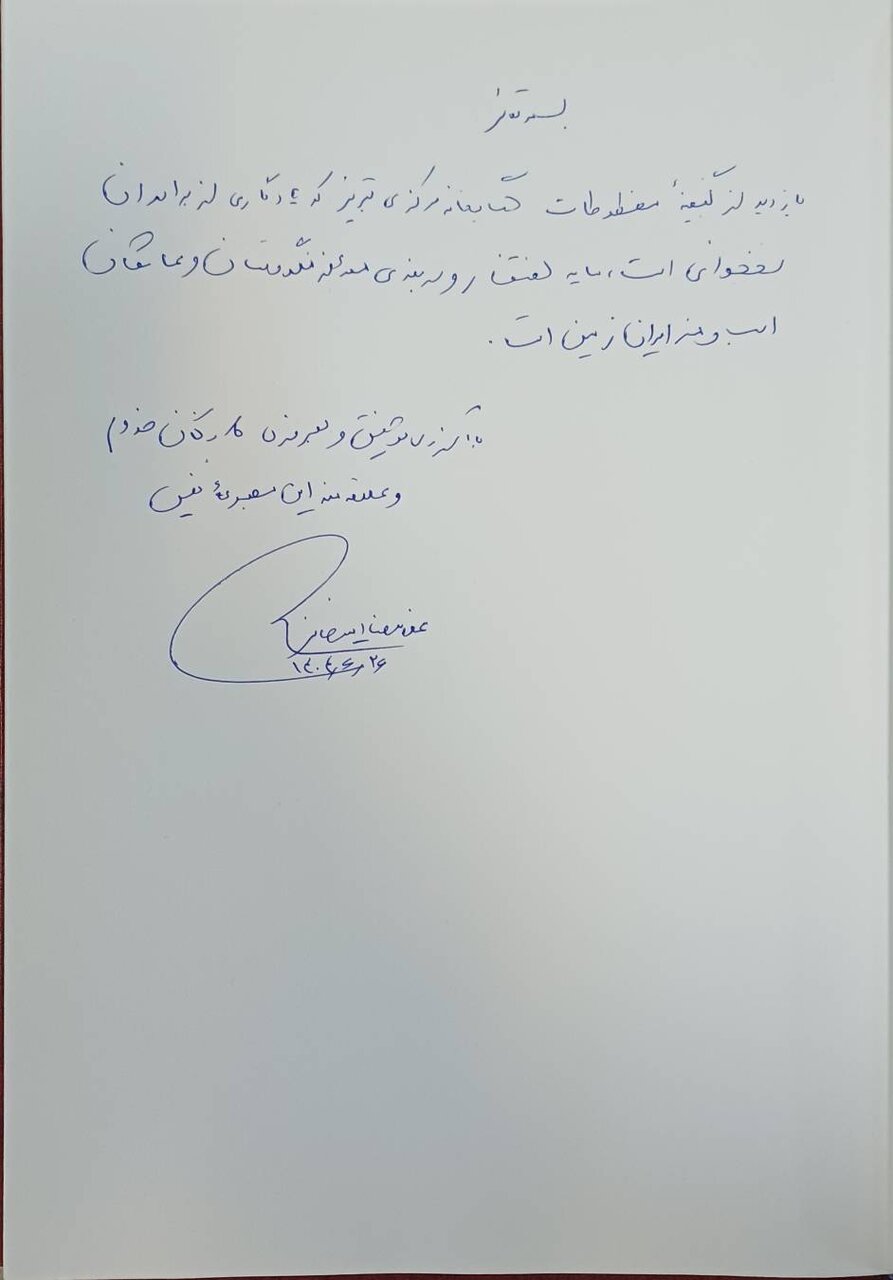 بسمه تعالی
بازدید از گنجینهٔ مخطوطات کتابخانه مرکزی تبریز که یادگاری از برادران
نخجوانی است، مایه افتخار و سربلندی همه فرهنگ‌دوستان و عاشقان
ادب و هنر ایران زمین است.
با آرزوی توفیق و بهروزی کارکنان خدوم
و علاقه‌مند این مجموعهٔ نفیس
غلامرضا امیرخانی
۱۴۰۴/۶/۲۶